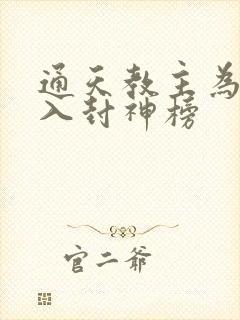 通天教主為
入封神榜
官二爺